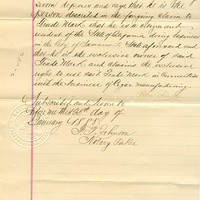 sworn deposes and says that he is the
person described in the foregoing claim to
Trade Mark, that he is a citizen and
resident of the State of Georgia doing business
in the City of Savannah, State aforesaid and
that he is the exclusive owner of said
Trade Mark, and claims the exclusive
right to use said Trade Mark in connection
with the business of Cigar manufacturing.
Subscribed and Sworn to
before me this day of
January 1888
Johnson
Notary Public